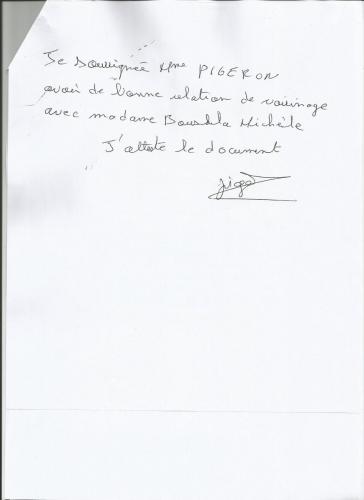 Je Soussignée Mme PIGERON
avoir de bonne relation de voisinage
avec madame Michèle
J'atteste le document